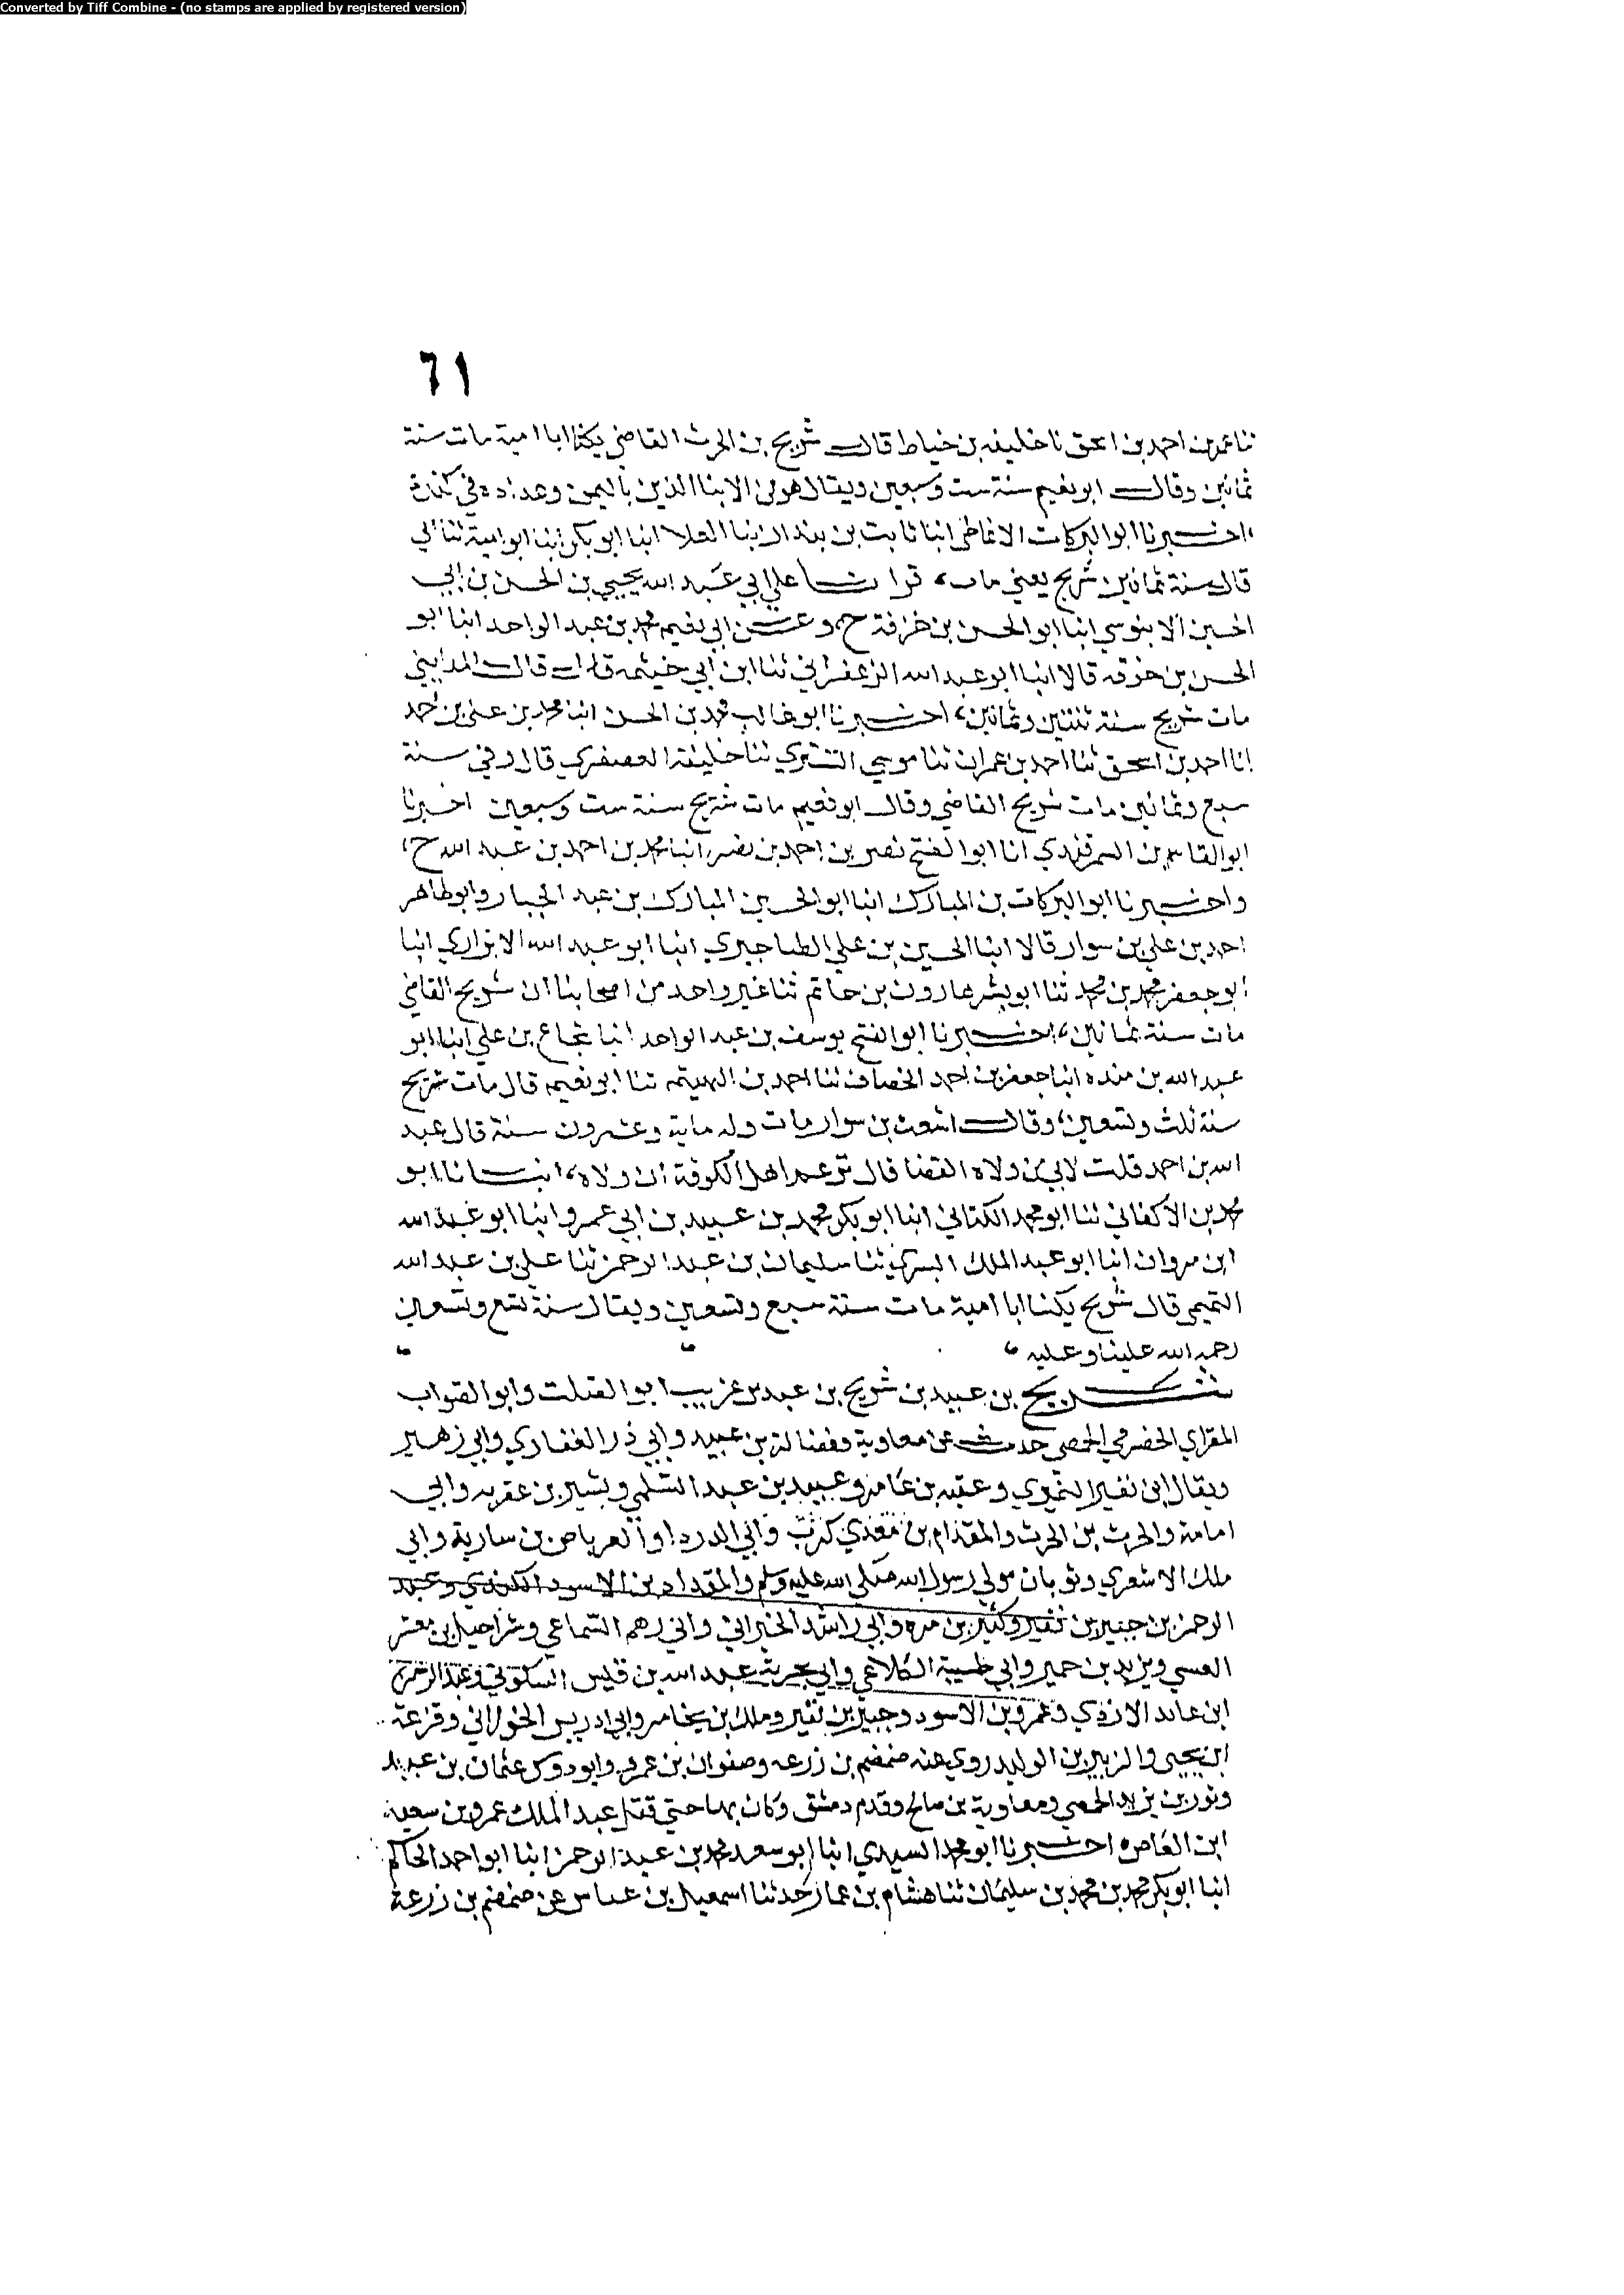 Converted by Tiff Combine - (no stamps are applied by registered version)
٦١
نا عمر بن احمد بن اسحق نا خليفه بن خياط قال شريح بن الحرث القاضي يكنا ابا امية مات سنة
ثمانين وقال ابو نعيم سنة ست وسبعين ويقال هو من الابنا الذين باليمن وعداده في كندة
اخبرنا ابو البركات الانماطي انبا ثابت بن بندار انبا ابو العلا انبا ابو بكر انبا ابو امية ثنا ابي
قال سنة ثمانين شريح يعني مات، قرات على ابي عبد الله يحيي بن الحسن بن ابي
الحسين الابنوسي انبا ابو الحسن بن خزفة ح، وعن ابي نعيم محمد بن عبد الواحد انبا ابو
الحسن بن خزفه قالا انبا ابو عبد الله الزعفراني ثنا ابن ابي خيثمه قال قال المدايني
مات شريح سنة ثنتين وثمانين، اخبرنا ابو غالب محمد بن الحسن انبا محمد بن علي بن احمد
انا احمد بن اسحق ثنا احمد بن عمران ثنا موسي التستري ثنا خليفة العصفري قال وفي سنة
سبع وثمانين مات شريح القاضي وقال ابو نعيم مات شريح سنة ست وسبعين اخبرنا
ابو القاسم بن السمرقندي انا ابو الفتح نصر بن احمد بن نصر انبا محمد بن احمد بن عبد الله ح،
واخبرنا ابو البركات بن المبارك انبا ابو الحسين المبارك بن عبد الجبار وابو طاهر
احمد بن علي بن سوار قالا انبا الحسين بن علي الطناجيري انبا ابو عبد الله الابزاري انبا
ابو جعفر محمد بن محمد ثنا ابو بشر هارون بن حاتم ثنا غير واحد من اصحابنا ان شريح القاضي
مات سنة ثمانين، اخبرنا ابو الفتح يوسف بن عبد الواحد انبا شجاع بن علي انبا ابو
عبد الله بن منده انبا جعفر بن احمد الخصاف ثنا احمد بن الهيثم ثنا ابو نعيم قال مات شريح
سنة ثلث وتسعين، وقال اشعث بن سوار مات وله ماية وعشرون سنة قال عبد
الله بن احمد قلت لابي من ولاه القضا قال تزعم اهل الكوفة ان ولاه، انبانا ابو
محمد بن الاكفاني ثنا ابو محمد الكتاني انبا ابو بكر محمد بن عبيد بن ابي عمرو انبا ابو عبد الله
ابن مروان انبا ابو عبد الملك البسري ثنا سليمان بن عبد الرحمن ثنا علي بن عبد الله
التميمي قال شريح يكنا ابا امية مات سنة سبع وتسعين ويقال سنة تسع وتسعين
رحمه الله علينا وعليه
شريح بن عبيد بن شريح بن عبد بن عريب ابو الصلت وابو الصواب
المقراي الحضرمي الحمصي حدث عن معاوية وفضالة بن عبيد وابي ذر الغفاري وابي زهير
ويقال ابن نفير النميري وعقبه بن عامر وعبيد بن عبد السلمي وبشير بن عقربه وابي
امامة والحرث بن الحرث والمقدام بن معدي كرب وابي الدردا والعرباض بن سارية وابي
ملك الاشعري وثوبان مولي رسول الله صلي الله عليه وسلم والمقداد بن الاسود الكندي وعبد
الرحمن بن جبير بن نفير وكثير بن مره وابي راشد الحبراني وابي رهم السماعي وشراحيل بن معشر
العسي ويزيد بن حمير وابي ظبية الكلاعي وابي بحرية عبد الله بن قيس السكوني وعبد الرحمن
ابن عايد الازدي وعمرو بن الاسود وجبير بن نفير وملك بن يخامر وابي ادريس الخولاني وقزعة
ابن يحيي والزبير بن الوليد روي عنه ضمضم بن زرعه وصفوان بن عمرو وابو دوس عثمان بن عبيد
وثور بن يزيد الحمصي ومعاوية بن صالح وقدم دمشق وكان بها حتي قتل عبد الملك عمرو بن سعيد
ابن العاص اخبرنا ابو محمد السيدي انبا ابو سعد محمد بن عبد الرحمن انبا ابو احمد الحاكم
انبا ابو بكر محمد بن محمد بن سليمان ثنا هشام بن عمار حدثنا اسمعيل بن عياش عن ضمضم بن زرعة